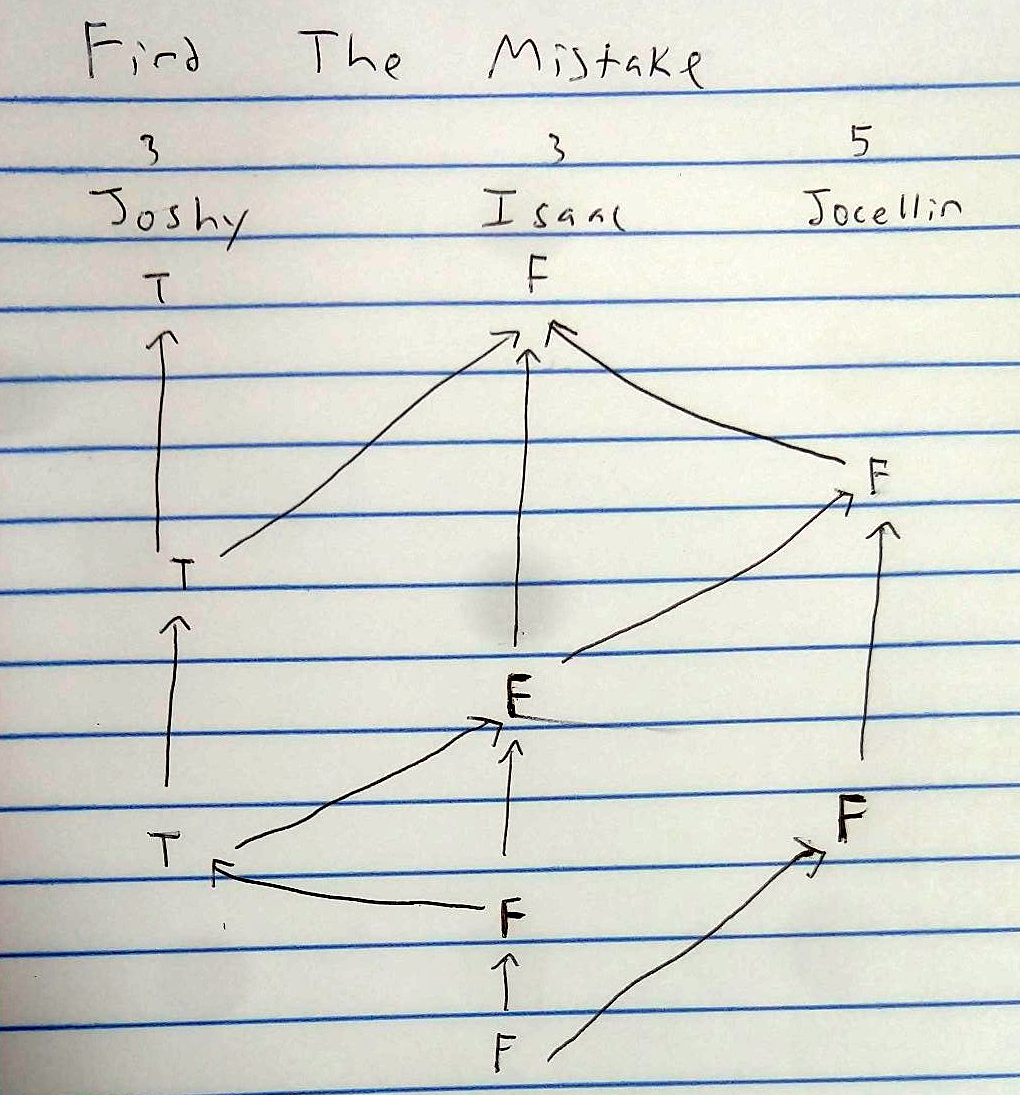 Find The Mistake
3 3 5
Joshy Isaac Jocellin
T F
F
T
E
F
T
F
F